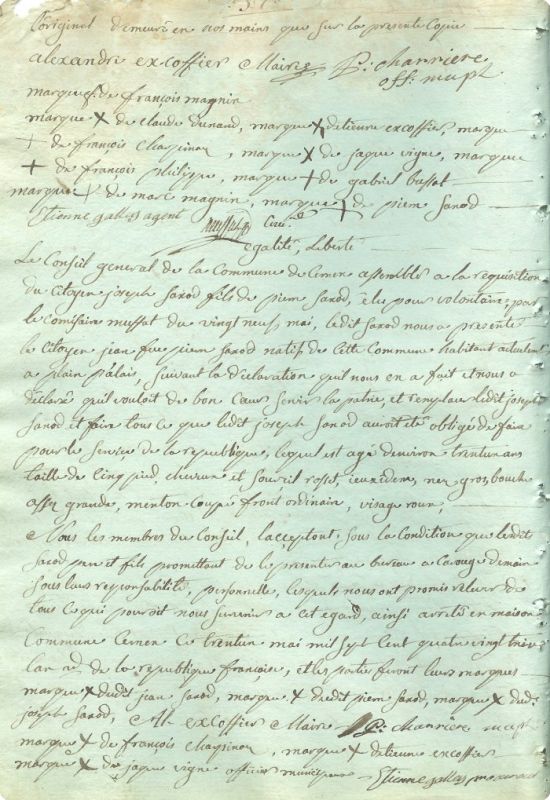 L'originel demeuré en nos mains que sur la presente Copie
alexandre excoffier Maire P. charriere
off. mupl
marque de françois magnin
marque X de claude dunand, marque X detienne excoffier, marque
+ de françois Chapinon, marque X de jaque vigne, marque
+ de françois philippe, marque + de gabriel bussat
marque + de marc magnin, marque + de pierre Saxod
Etienne gallay agent
egalité, Liberté
Le Conseil general de la Commune de Cernex assemblés a la requisition
du Citoyen joseph Saxod fils de pierre Saxod, elu pour volontaire, par
le Comisaire mussat du vingt neuf mai, ledit Saxod nous a presenté
le Citoyen jean feu pierre Saxod natif de Cette Commune habitant actuelment
a plain palais, suivant la declaration quil nous en a fait et nous a
declaré quil vouloit de bon Coeur Servir la patrie, et remplacer ledit joseph
Saxod et faire tous Ce que ledit joseph Saxod auroit été obligé de faire
pour le Service de la republique, lequel est agé denviron trentun ans
taille de Cinq pied, cheveux et Sourcil rosset, ieux idem, nez gros, bouche
assez grande, menton Coupé front ordinair, visage rour,
Nous les membres du Conseil, lacceptont, Sous la Condition que lesdit
Saxod pere et fils promettont de le presenter au bureau a Carouge demain
Sous leurs responsabilité, personnelle, lesquels nous ont promis relever de
tous Ce qui pourroit nous survenir a cet egard, ainsi arreté en maison
Commune Cernex Ce trentun mai mil sept Cent quatre vingt treize
lan 2d de la republique françoise, et les partie feront leurs marques
marque X dudit jean Saxod, marque X dudit pierre Saxod, marque X dud.
joseph Saxod, Al. excoffier Maire P. Charriere mupl
marque X de françois Chapinon, marque X detienne excoffier
marque X de jaque vigne officiers municipaux Etienne gallay